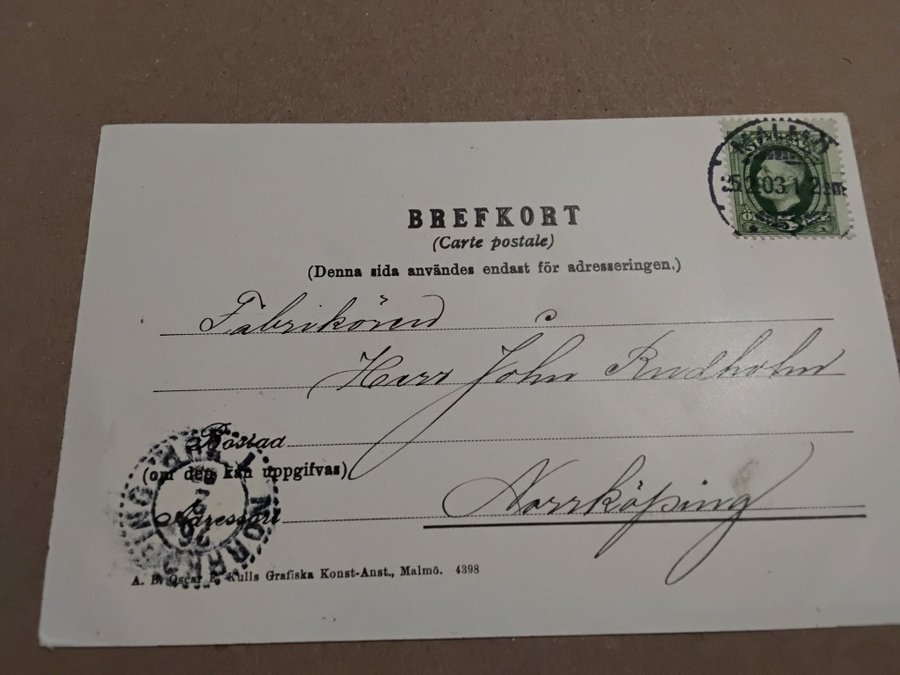 MALMÖ
BREFKORT
(Carte postale)
(Denna sida användes endast för adresseringen.)
Fabrikören
Herr John Rudholm
Bostad
(om den kan uppgifvas)
Norrköping
Adressort
NORRKÖPING
A. B. Oscar L. Kulls Grafiska Konst-Anst., Malmö. 4398